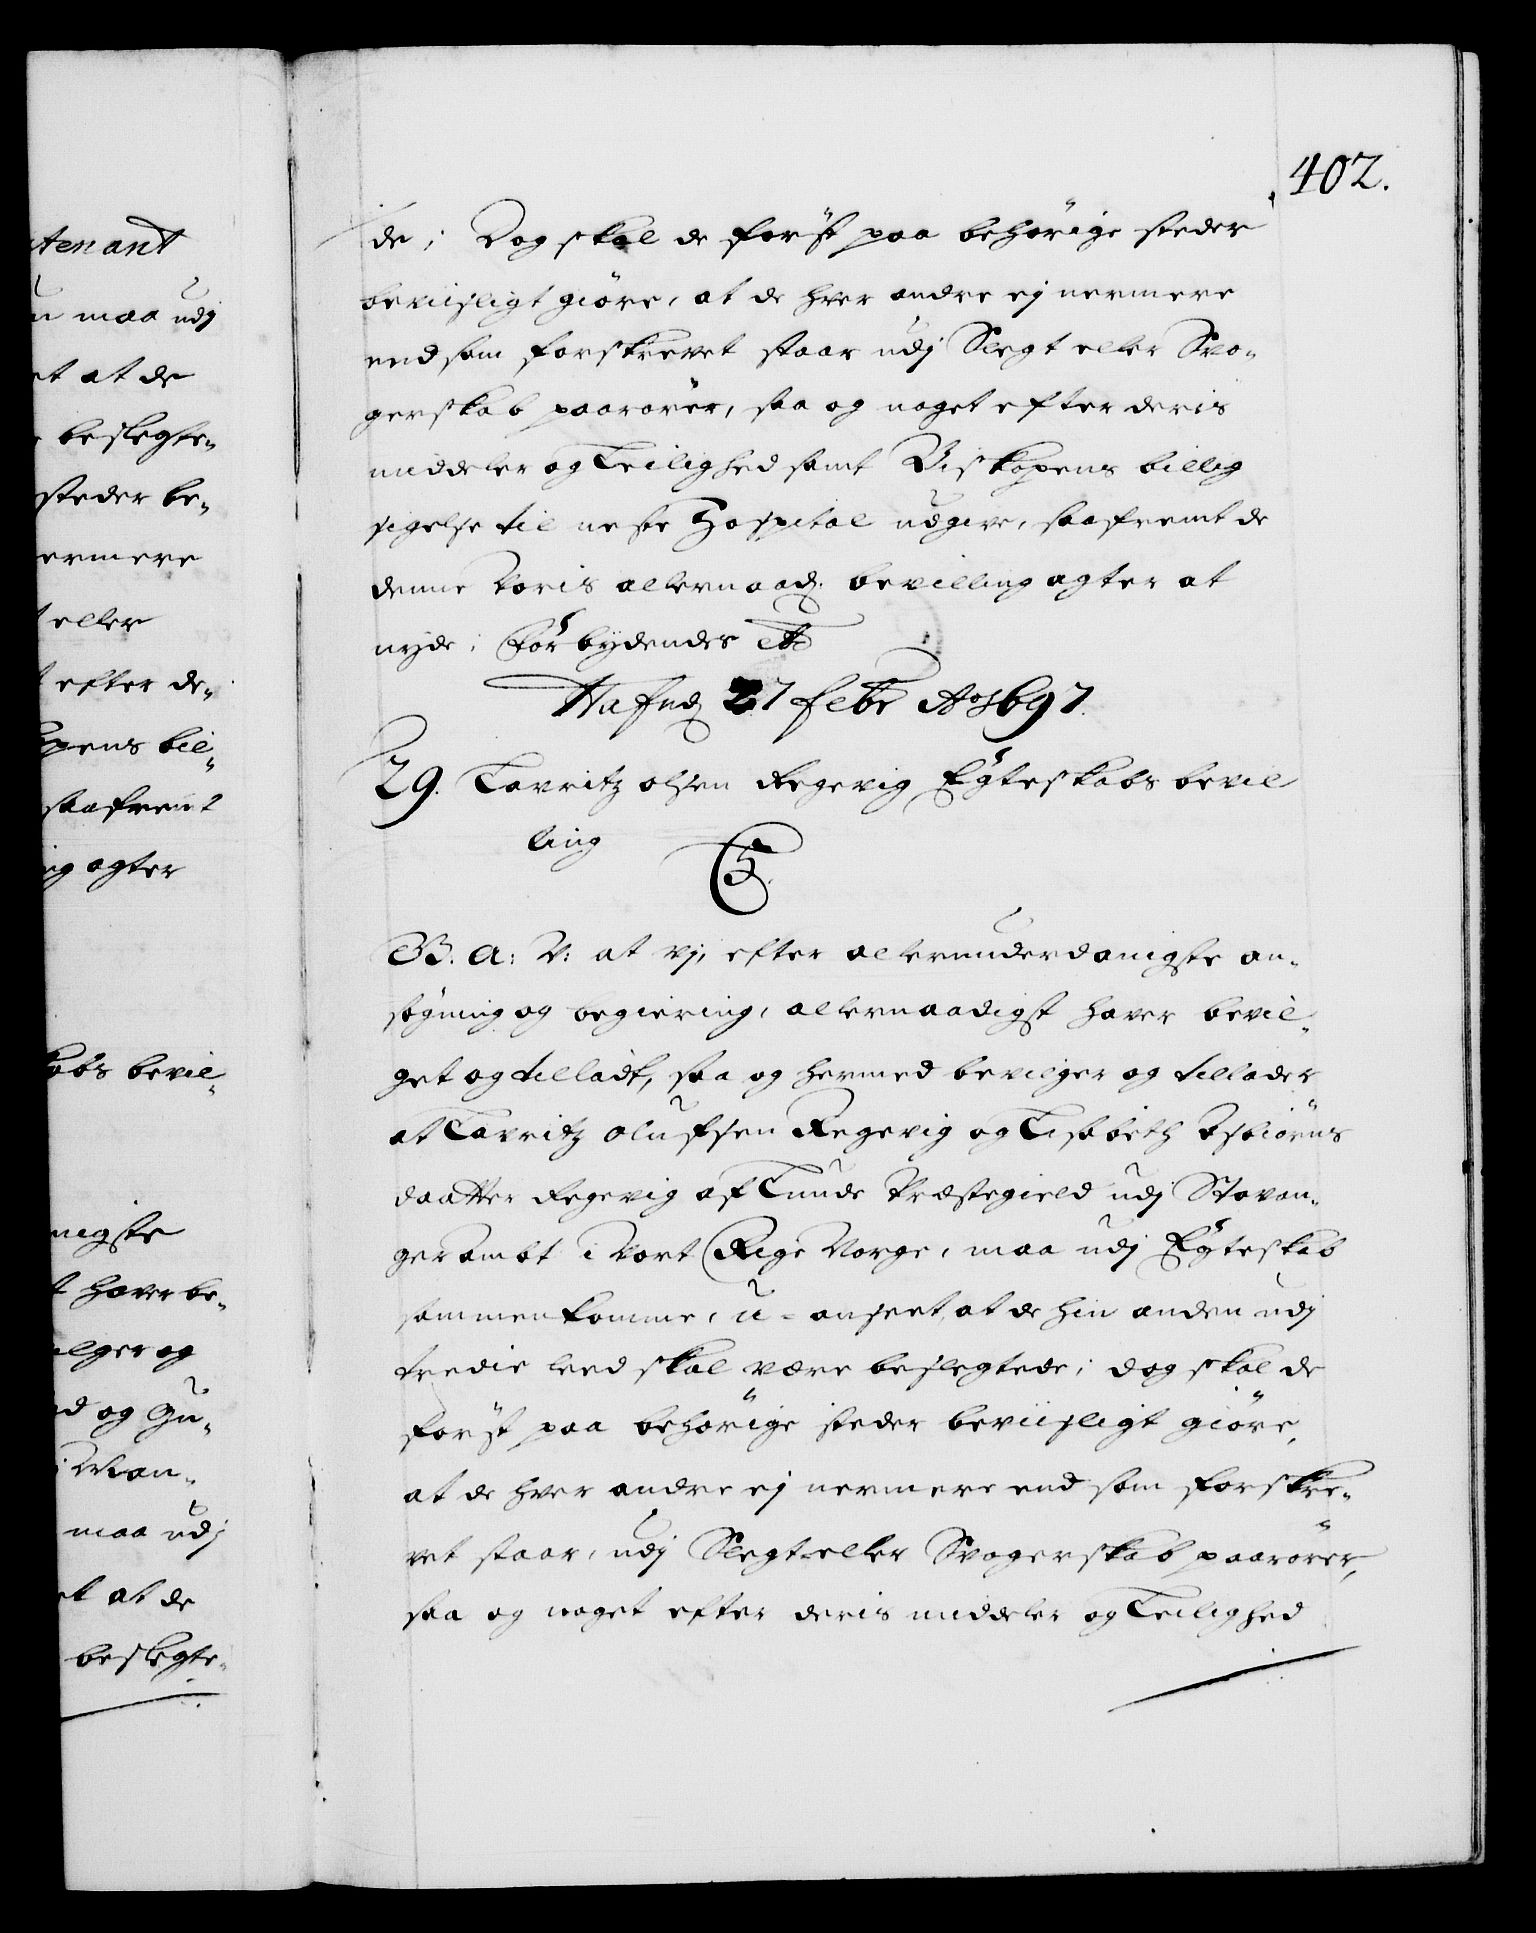 402.
de; Dog skal de först paa behörige steder
beviisligt giöre, at de hver andre ej nermere
end som forskrevet staar udj Slegt eller Svo-
gerskab paarörer, saa og noget efter deris
middeler og Leilighed samt Biskopens billig
sigelse til neste Hospital udgive, saafremt de
denne Voris allernaad: bevilling agter at
nyde; Forbydendes etc
Hafnd 27 febr Ao 1697.
29. Lavritz olsen Regevig Egteskabs bevil
ling
C5.
G. A: V: at vj, efter allerunderdanigste an-
sögning og begiering, allernaadigst haver bevil-
get og tilladt, saa og hermed bevilger og tillader
at Lavritz olufsen Regevig og Lisabeth Asbiörns
daatter Regevig af Lunde Præstegield udj Stavan-
ger ambt i Vort Rige Norge, maa udj Egteskab
sammenkomme, u-anseet, at de hin anden udj
tredie leed skal være beslegtede; dog skal de
först paa behörige steder beviisligt giöre,
at de hver andre ej nermere end som forskre-
vet staar, udj Slegt eller Svogerskab paarörer,
saa og noget efter deris middeler og Leilighed
tenant
maa udj
et at de
beslegte-
steder be-
ermere
eller
efter de-
pens bil-
saafremt
ng agter
kabs bevil-
nigste
t haver be-
ilger og
d og Gu-
Man-
maa udj
et at de
beslegte-